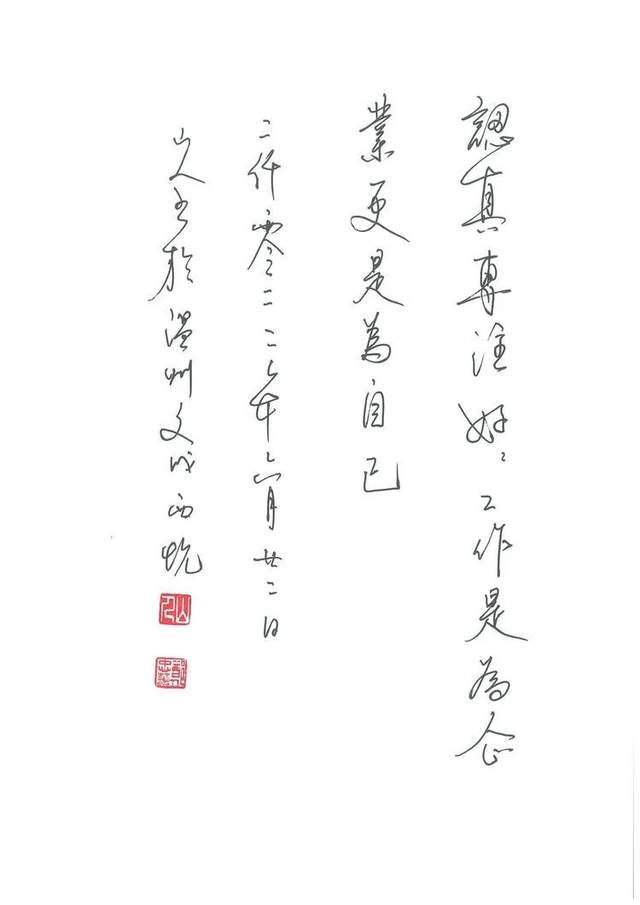 認真專注好〻工作是為企
業更是為自己
二仟零二二年六月廿二日
山人书於溫州文成西坑
山人